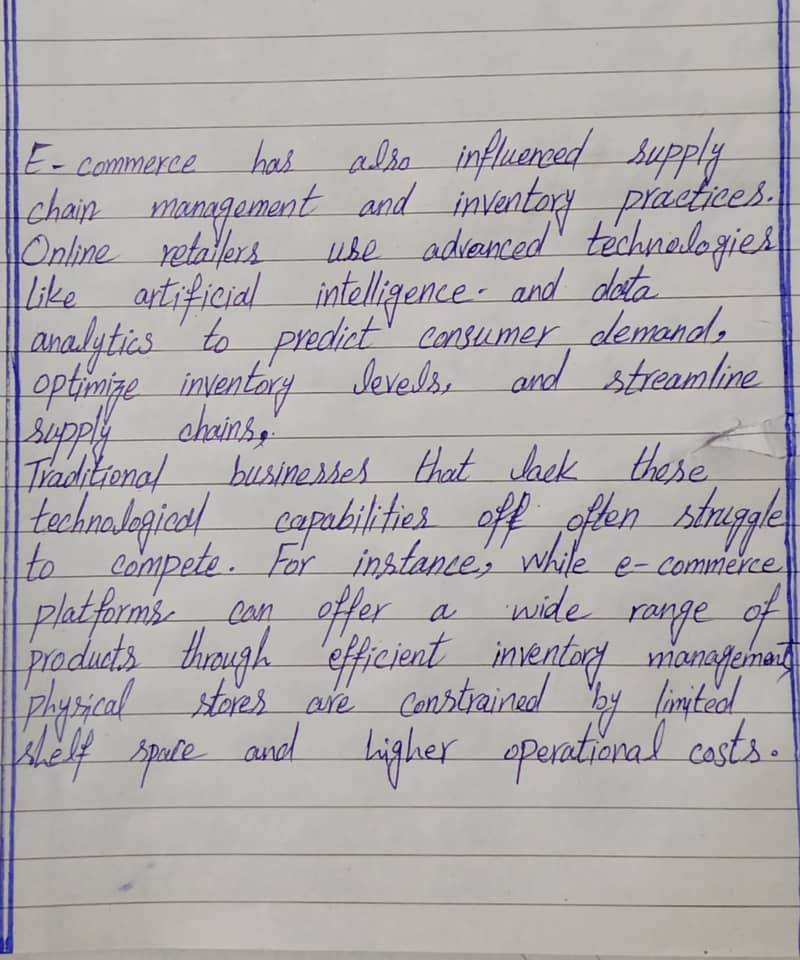 E-commerce has also influenced supply
chain management and inventory practices.
Online retailers use advanced technologies
like artificial intelligence and data
analytics to predict consumer demand,
optimize inventory levels, and streamline
supply chains.
Traditional businesses that lack these
technological capabilities off often struggle
to compete. For instance, while e-commerce
platforms can offer a wide range of
products through efficient inventory management,
physical stores are constrained by limited
shelf space and higher operational costs.